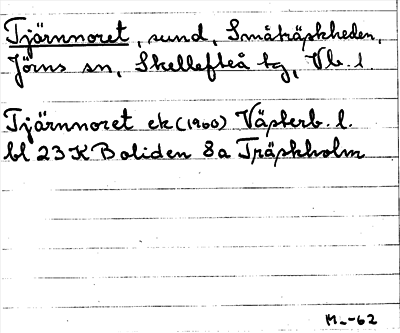 Tjärnnoret, sund, Småträskheden,
Jörns sn, Skellefteå tg, Vb. l.
Tjärnnoret ek (1960) Västerb. l.
bl 23 K Boliden 8a Träskholm
M.-62